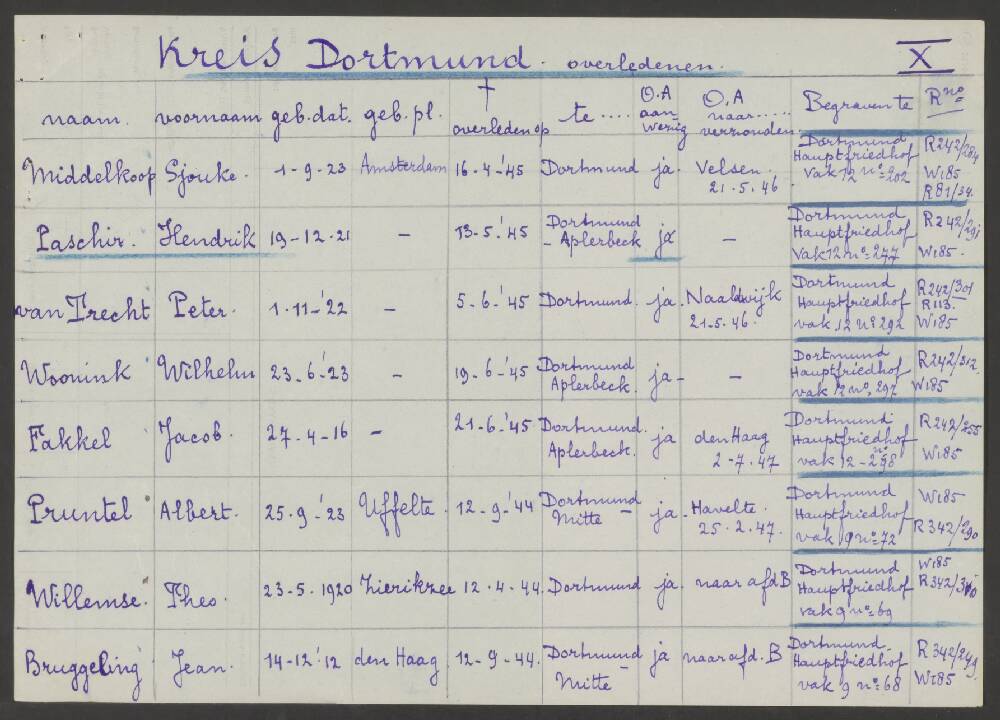 Kreis Dortmund. overledenen. X
naam. voornaam geb.dat. geb.pl. † overleden op te..... O.A aanwezig O.A naar..... verzonden. Begraven te R no
Middelkoop Sjouke. 1-9-23 Amsterdam 16-4-'45 Dortmund ja. Velsen. 21.5.46. Dortmund Hauptfriedhof Vak 12 no=202 R242/284 W185 R81/34.
Paschir. Hendrik 19-12-21 – 13-5-'45 Dortmund - Aplerbeck ja – Dortmund Hauptfriedhof Vak 12 no=277 R242/291 W185.
van Trecht Peter. 1-11-'22 – 5-6-'45 Dortmund. ja. Naaldwijk 21-5-46. Dortmund Hauptfriedhof vak 12 no 292 R242/301 R113 W185
Woonink Wilhelm 23-6-'23 – 19-6-'45 Dortmund Aplerbeck. ja- – Dortmund Hauptfriedhof vak 12 no, 297 R242/312. W185
Fakkel Jacob. 27-4-16 – 21-6-'45 Dortmund. Aplerbeck. ja den Haag 2-7.47 Dortmund Hauptfriedhof vak 12 - no 298 R242/255 W185
Pruntel Albert. 25.9-'23 Uffelte. 12-9-'44 Dortmund Mitte – ja. Havelte. 25.2.47. Dortmund Hauptfriedhof vak 9 no=72 W185 R342/290
Willemse. Theo. 23-5-1920 Zierikzee 12-4-44. Dortmund ja. naar afd B Dortmund Hauptfriedhof vak 9 no=69 W185 R342/310
Bruggeling Jean. 14-12-'12 den Haag 12-9-44. Dortmund Mitte – ja naar afd. B Dortmund- Hauptfriedhof vak 9 no=68 R342/249. W185